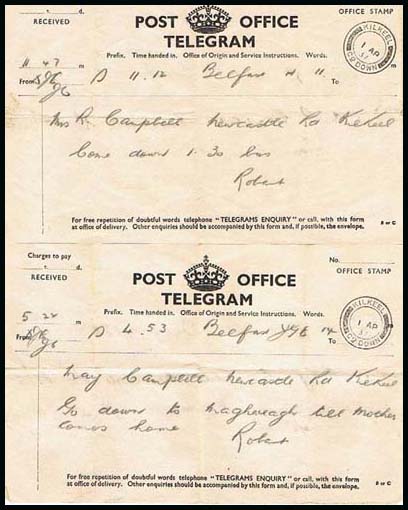 s. d.
OFFICE STAMP
POST OFFICE
RECEIVED
TELEGRAM
KILKEEL
1 AP
CO DOWN
Prefix. Time handed in. Office of Origin and Service Instructions. Words.
11 47 m
From
D 11.12 Belfast 11 To
Mrs R. Campbell Newcastle Rd Kilkeel
Come down 1.30 bus
Robert
For free repetition of doubtful words telephone "TELEGRAMS ENQUIRY" or call, with this form
at office of delivery. Other enquiries should be accompanied by this form and, if possible, the envelope.
B or C
Charges to pay
s. d.
No.
OFFICE STAMP
POST OFFICE
RECEIVED
TELEGRAM
KILKEEL
1 AP
CO DOWN
Prefix. Time handed in. Office of Origin and Service Instructions. Words.
5 22 m
From
D 4.53 Belfast 14 To
May Campbell Newcastle Rd Kilkeel
Go down to Maghreagh till Mother
comes home
Robert
For free repetition of doubtful words telephone "TELEGRAMS ENQUIRY" or call, with this form
at office of delivery. Other enquiries should be accompanied by this form and, if possible, the envelope.
B or C